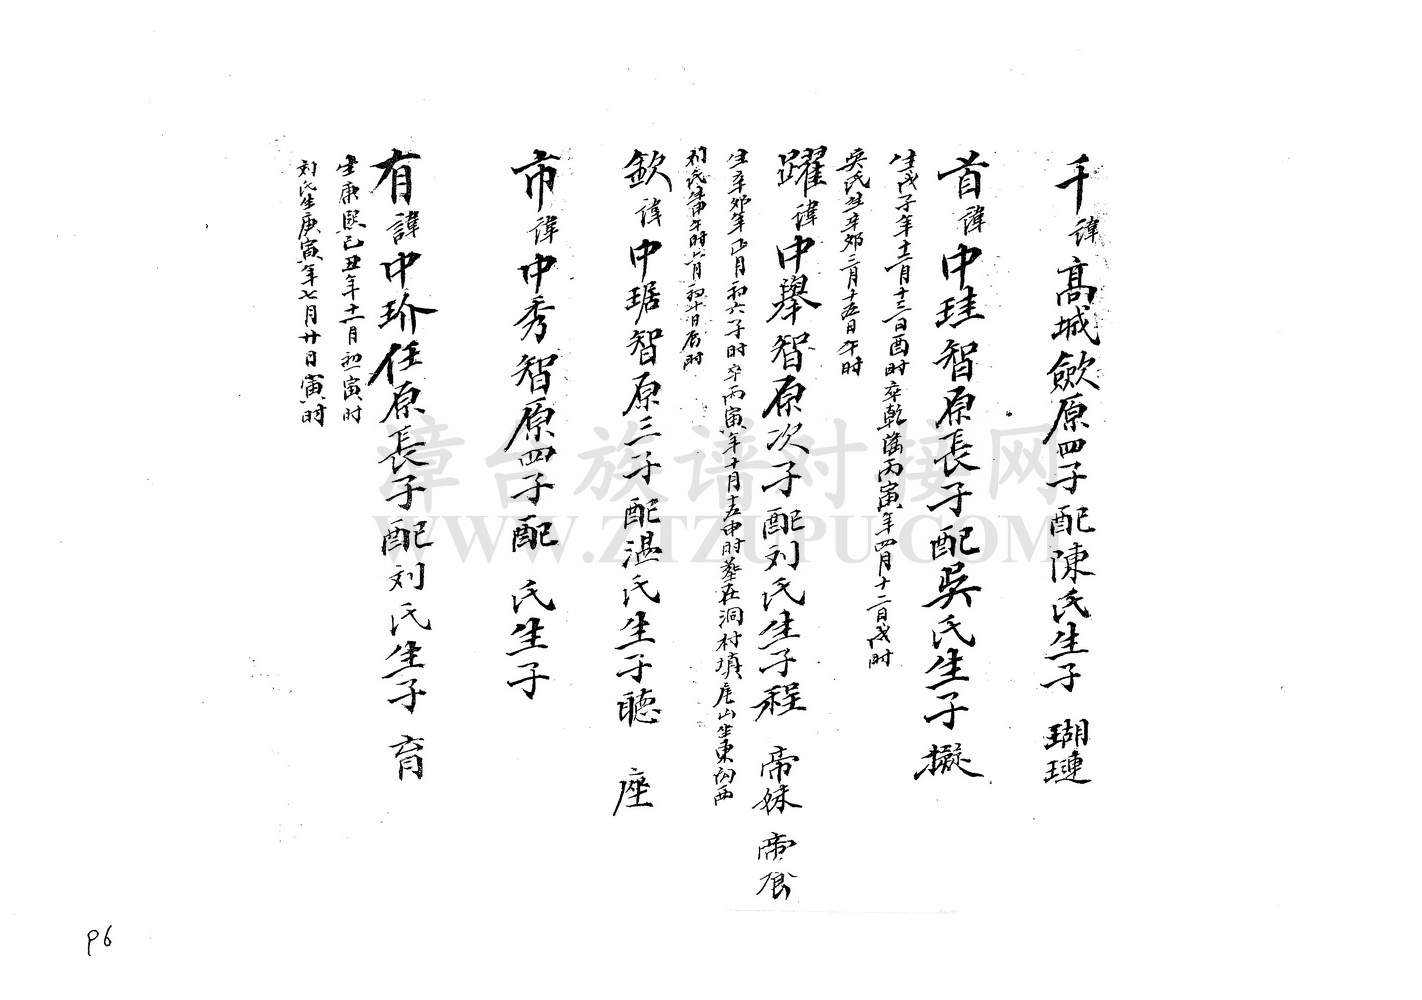 千諱高城歛原四子配陳氏生子 瑚 璉
首諱中珪智原長子配吳氏生子 擬
生戊子年十二月十三日酉时卒乾隆丙寅年四月十二日戌时
吳氏生辛郊二月十五日午时
躍諱中舉智原次子配刘氏生子程 帝妹 帝
生辛郊年正月初六子时卒丙寅年十月十五申时葬在洞村填尾山坐東向西
刘氏 甲午时六月初十日辰时
欽諱中琚智原三子配温氏生子聽 座
市諱中秀智原四子配 氏生子
有諱中玠任原長子配刘氏生子 育
生康熙己丑年十一月初 寅时
刘氏生庚寅年七月廿日寅时
漳台族谱对接网
WWW.ZTZUPU.COM
P6